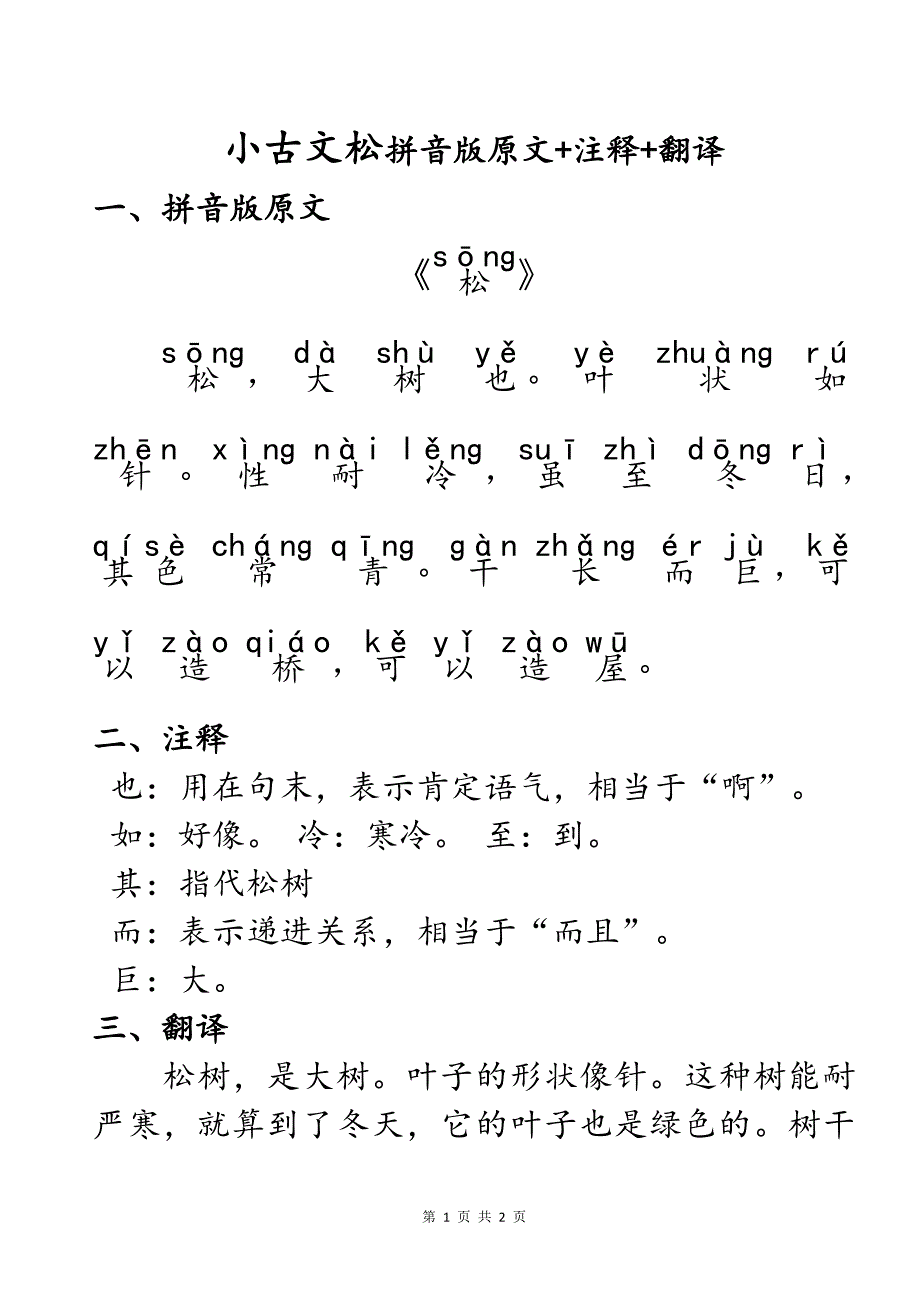 小古文松拼音版原文+注释+翻译
一、拼音版原文
sōng
《松》
sōng dà shù yě yè zhuàng rú
松，大树也。叶状如
zhēn xìng nài lěng suī zhì dōng rì
针。性耐冷，虽至冬日，
qí sè cháng qīng gàn zhǎng ér jù kě
其色常青。干长而巨，可
yǐ zào qiáo kě yǐ zào wū
以造桥，可以造屋。
二、注释
也：用在句末，表示肯定语气，相当于“啊”。
如：好像。 冷：寒冷。 至：到。
其：指代松树
而：表示递进关系，相当于“而且”。
巨：大。
三、翻译
松树，是大树。叶子的形状像针。这种树能耐
严寒，就算到了冬天，它的叶子也是绿色的。树干
第 1 页 共 2 页